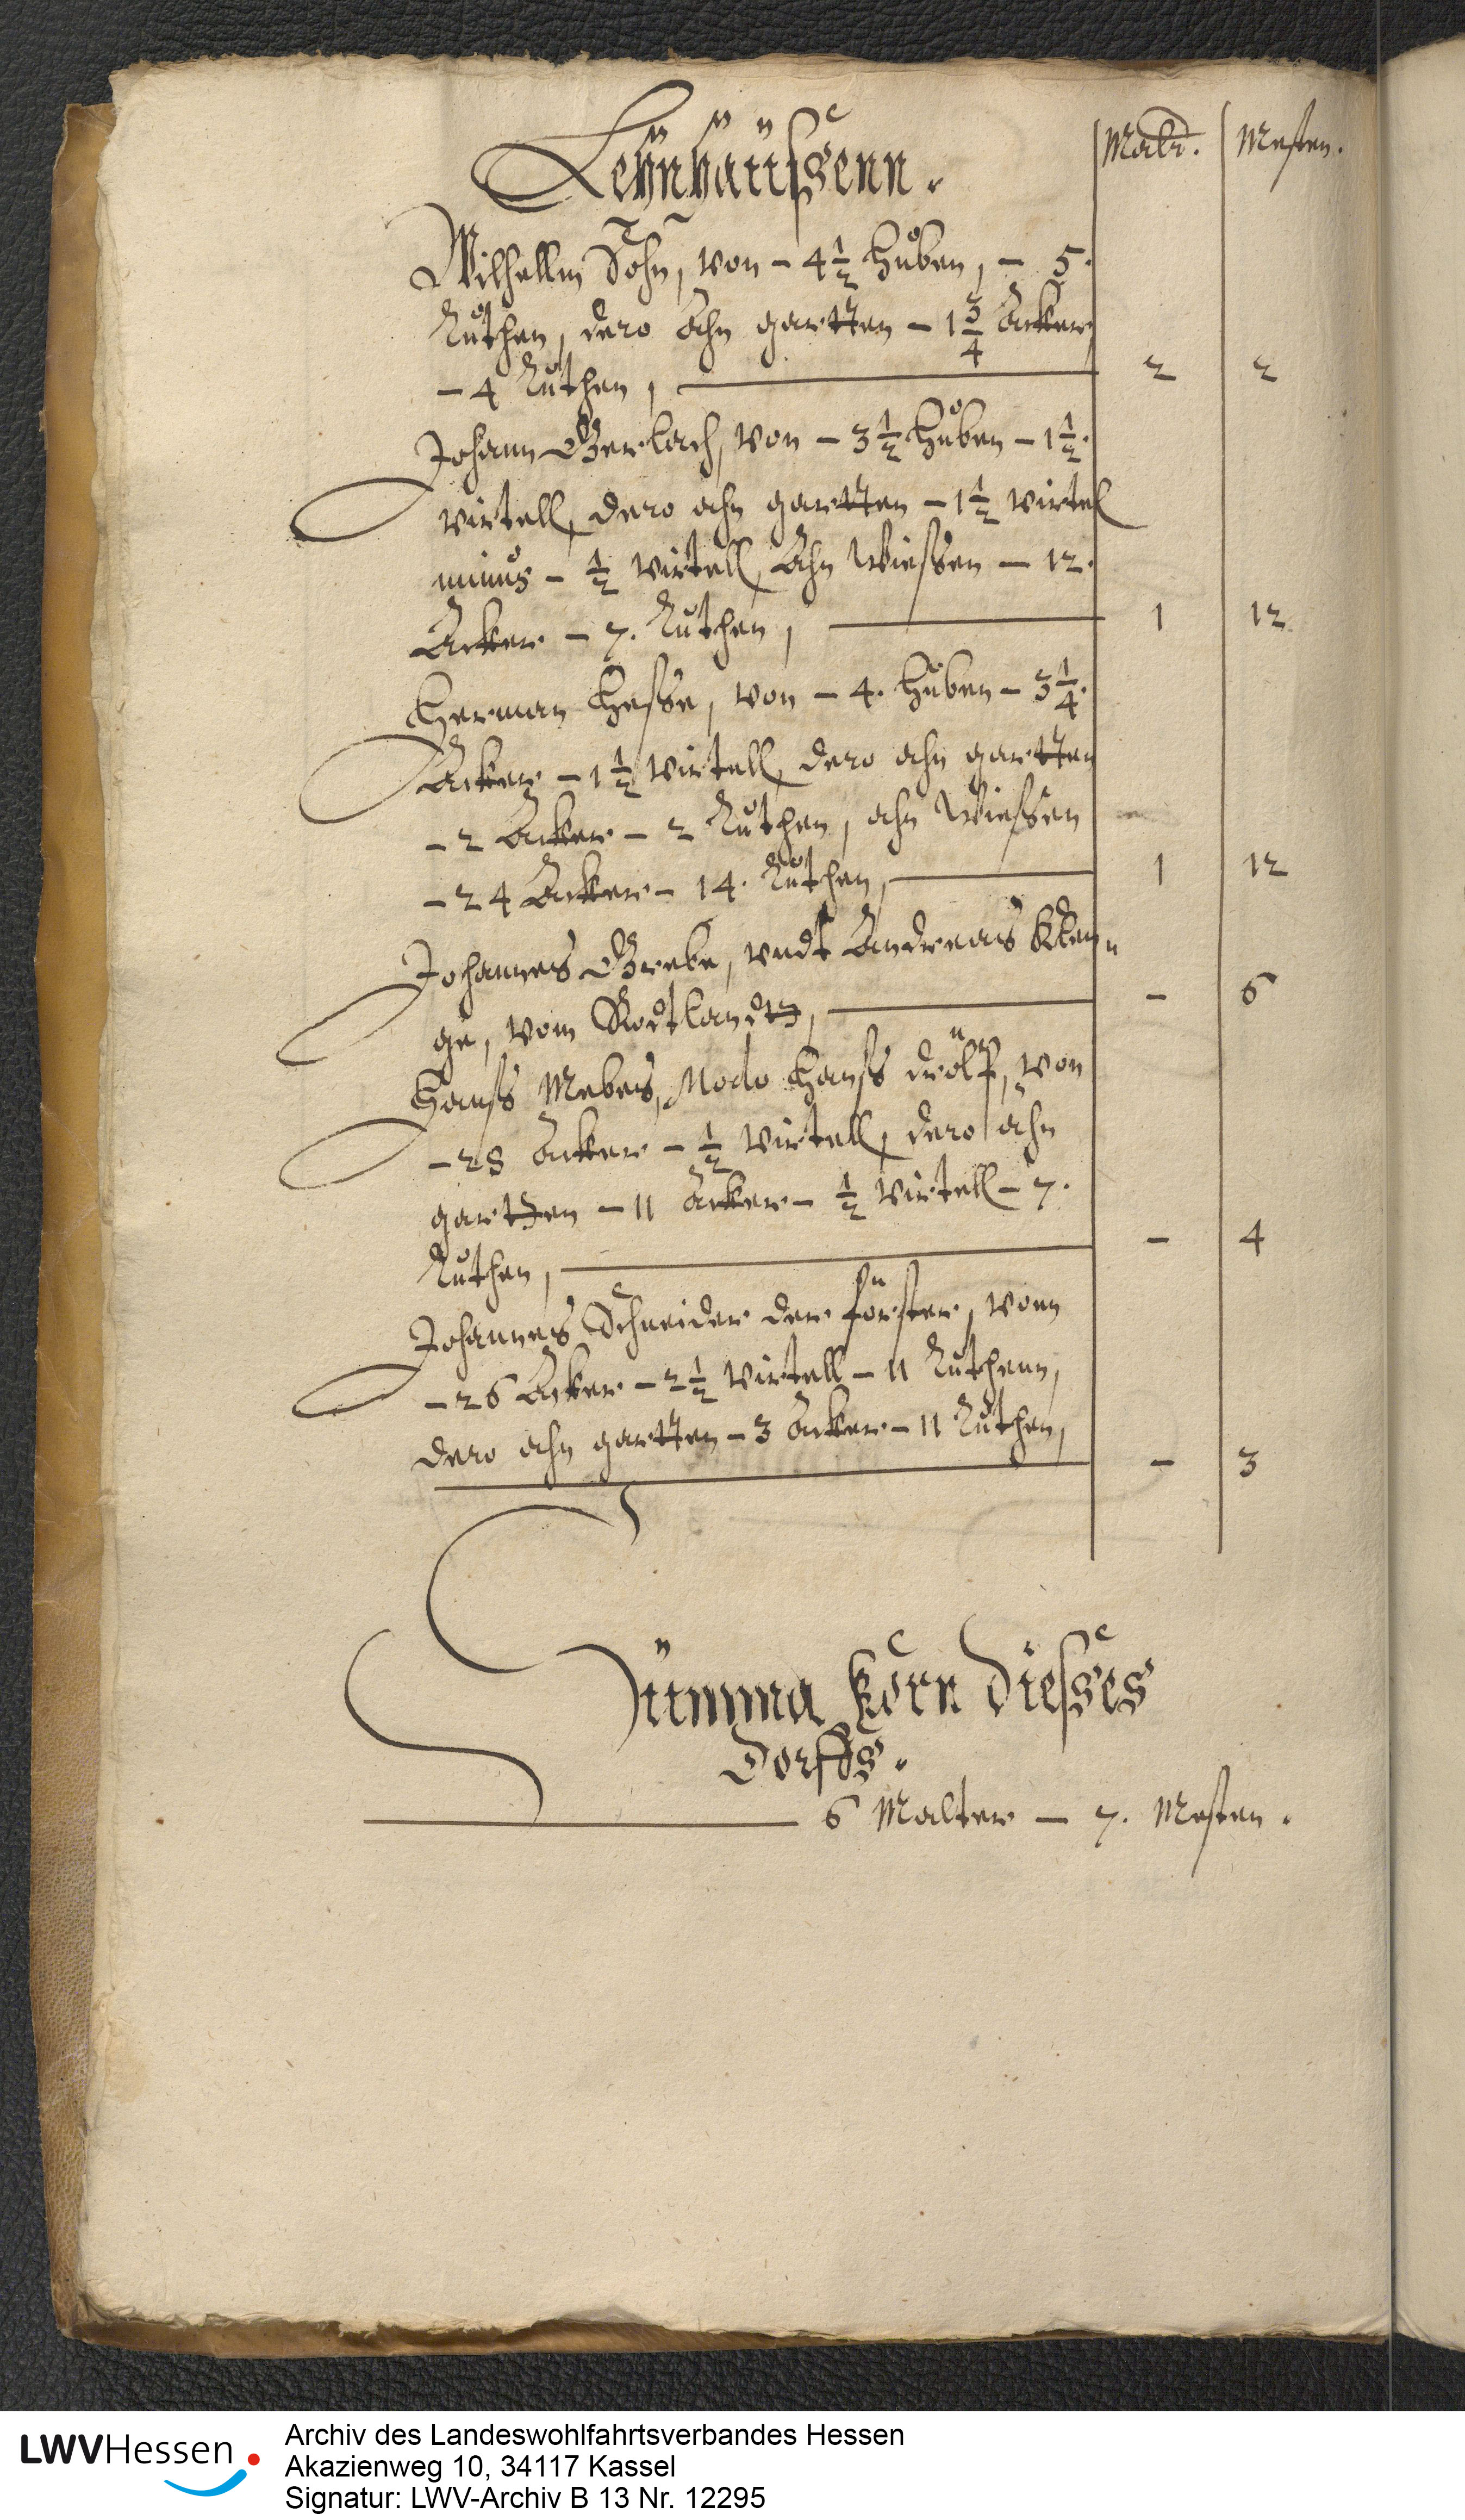 Lehnhaüßenn.
Maltr. Mesten.
Wilhellm Sohn, von - 4 1/2 Huben, - 5.
Ruthen, dero Ahn gartten - 1 3/4 Acker
- 4 Ruthen, 2 2
Johann Gerlach, von - 3 1/2 Huben - 1 1/2.
virtell, dero ahn gartten - 1 1/2 virtel
minus - 1/2 virtell, Ahn Wiessen - 12.
Acker - 7. Ruthen, 1 12
Herman Hesse, von - 4. Huben - 3 1/4.
Acker - 1 1/2 virtell, dero ahn gartten
- 2 Acker - 2 Ruthen, ahn Wiessen
- 24 Acker - 14. Ruthen, 1 12
Johannes Grebe, vndt Andreas
ge, vom Rodtlandt, - 6
Hanß Mebes, Modo Hanß Drölf, von
- 28 Acker - 1/2 virtell, dero ahn
gartten - 11 Acker - 1/2 virtell - 7.
Ruthen, - 4
Johannes Schneider der förster, vonn
- 26 Acker - 2 1/2 virtell - 11 Ruthenn,
dero ahn gartten - 3 Acker - 11 Ruthen,
- 3
Summa Korn dießes
Dorffs.
6 Malter - 7. Mesten.
LWVHessen
Archiv des Landeswohlfahrtsverbandes Hessen
Akazienweg 10, 34117 Kassel
Signatur: LWV-Archiv B 13 Nr. 12295